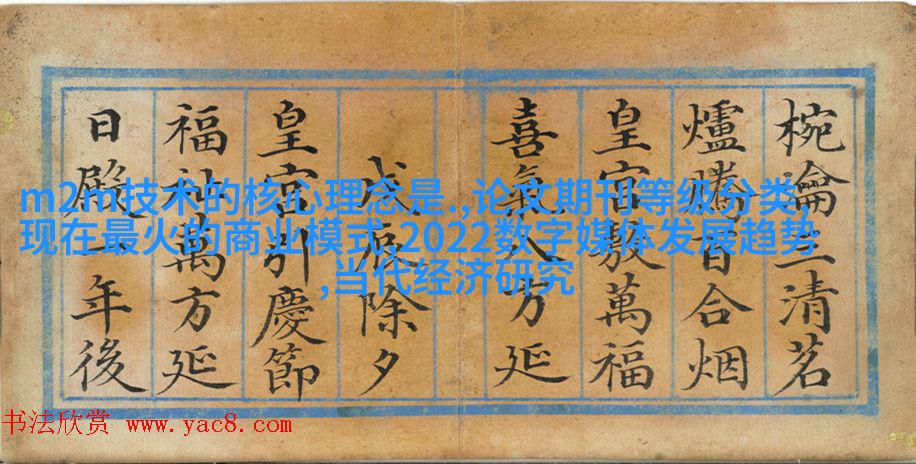 椀瀹三清茗
爐騰百合烟
皇宮敷萬福
喜氣八方延
戊辰除夕
皇宮引慶節
福祉萬方延
日殿一年後
m2m技术的核心理念是.,论文期刊等级分类,
现在最火的商业模式,2022数字媒体发展趋势
,当代经济研究
书法欣赏 www.yac8.com